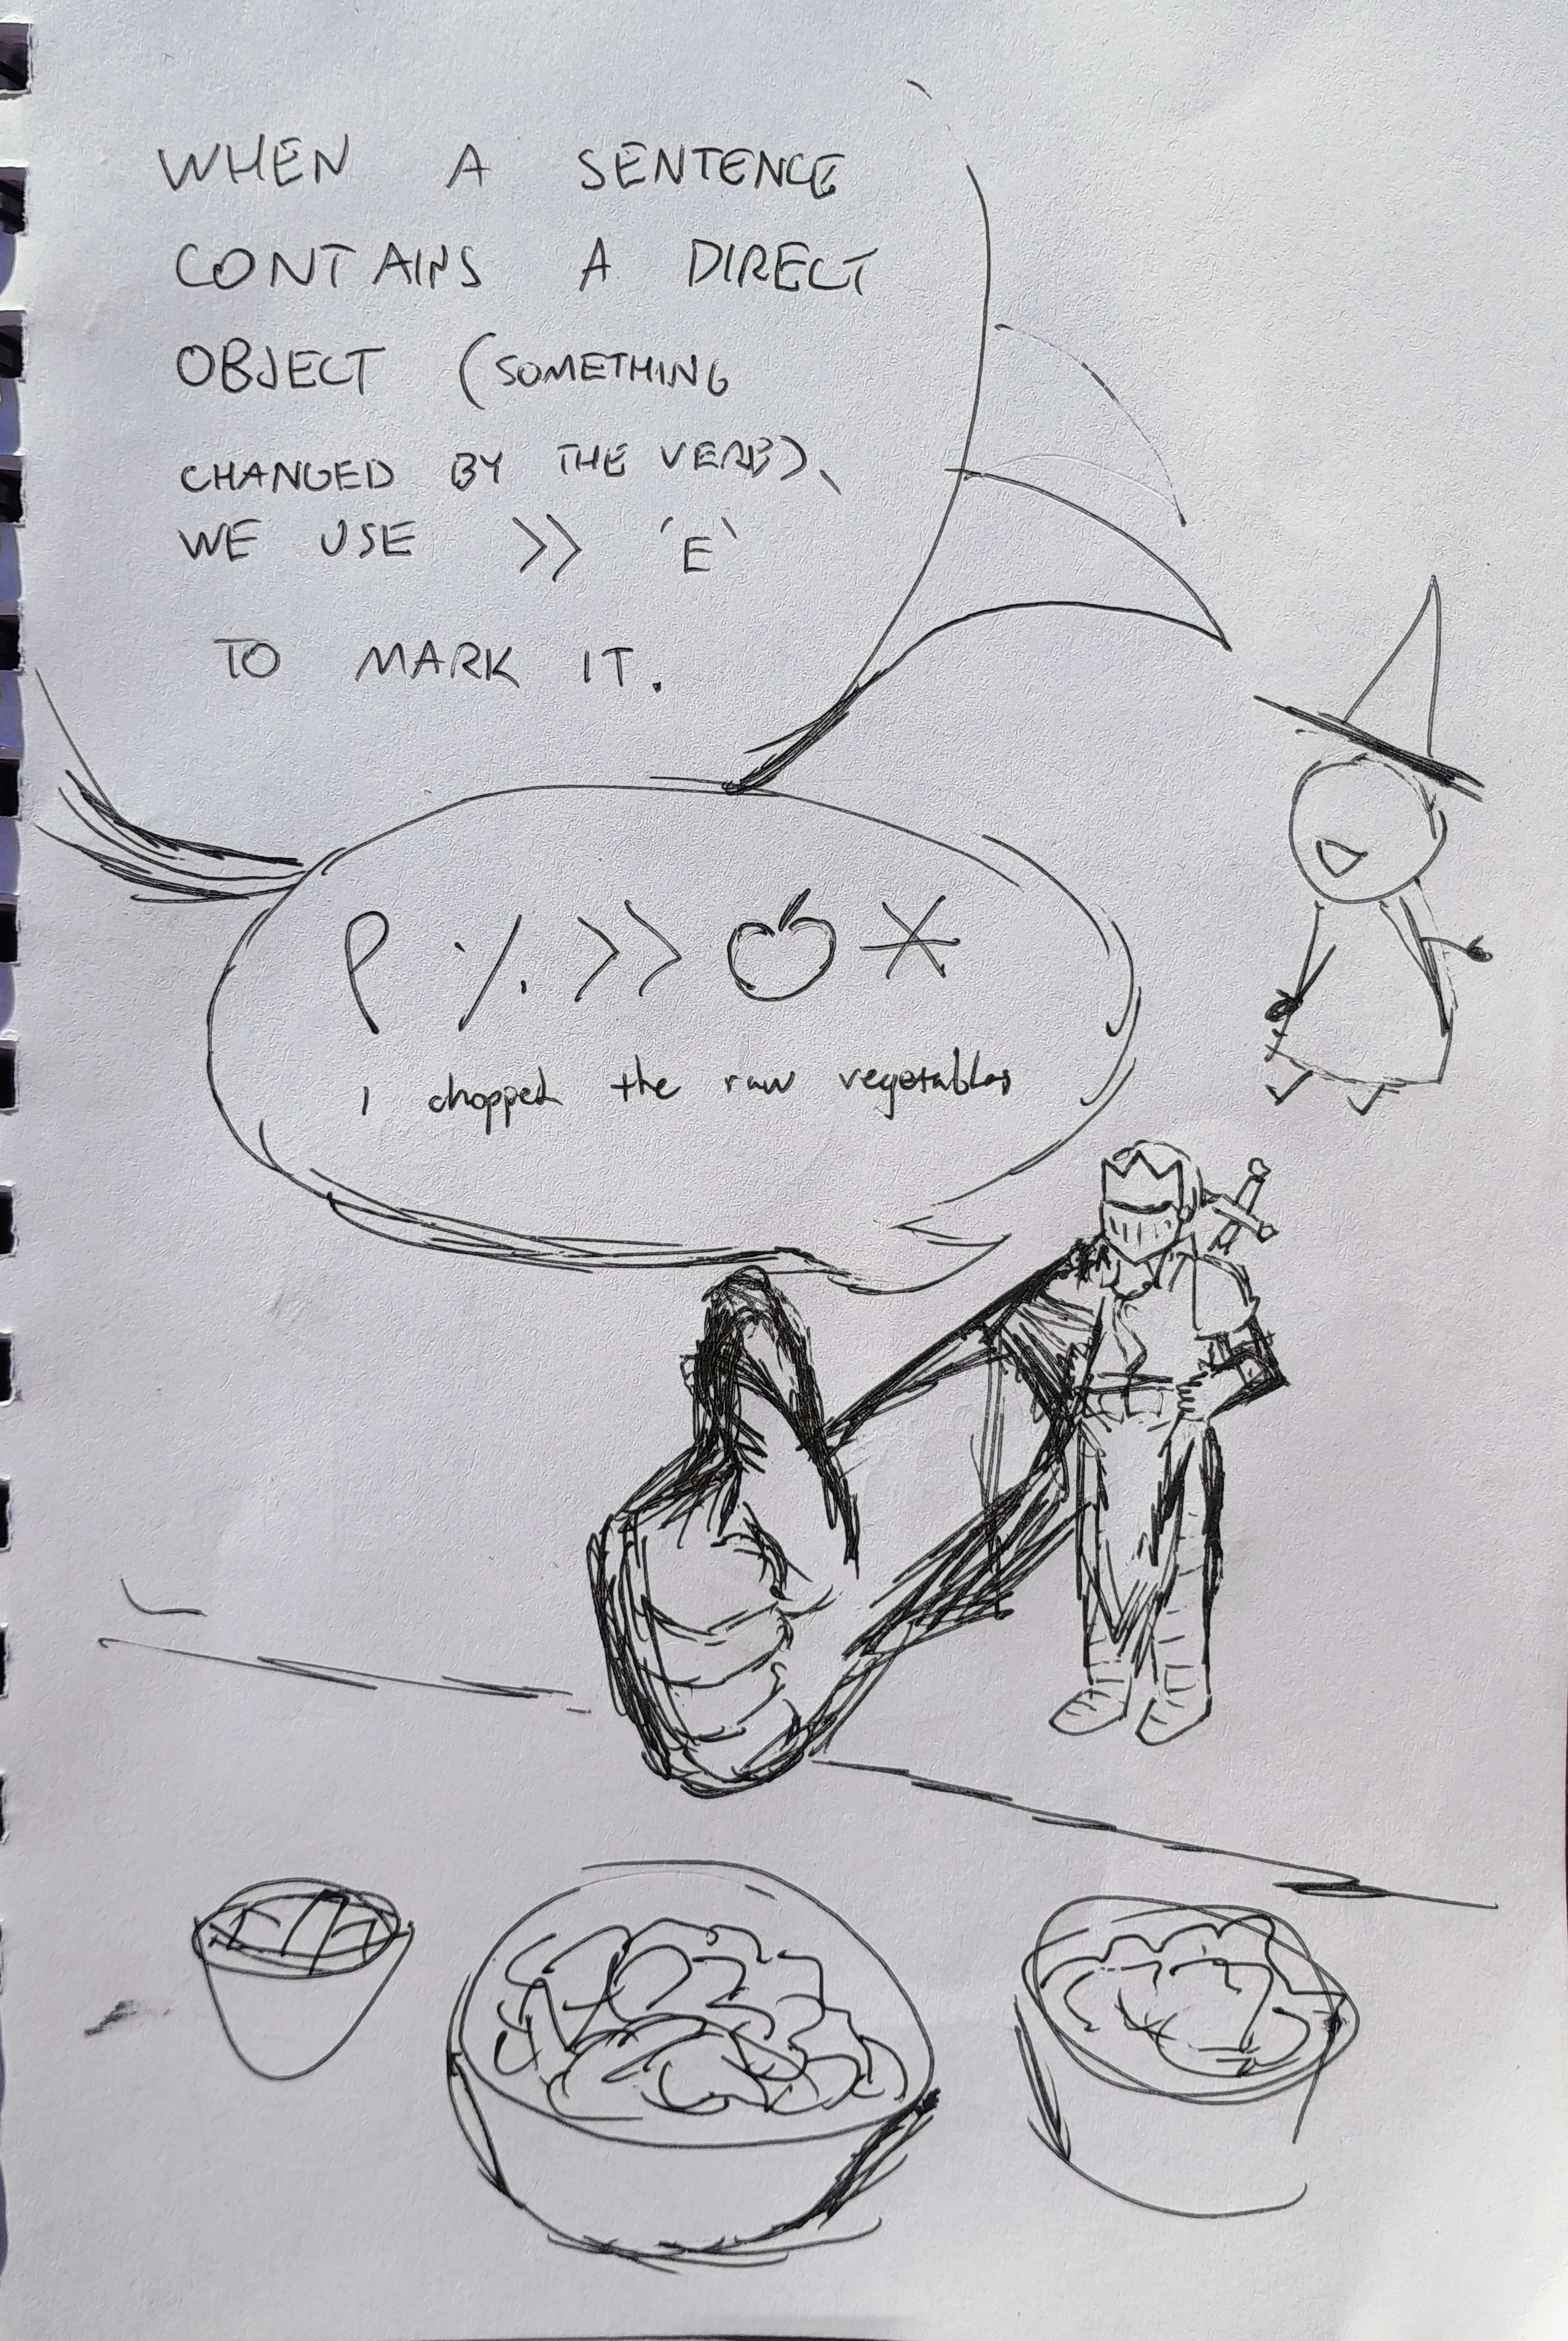 WHEN A SENTENCE
CONTAINS A DIRECT
OBJECT (SOMETHING
CHANGED BY THE VERB),
WE USE >> 'E'
TO MARK IT.
ρ ⁒ >> 🍎 *
I chopped the raw vegetables